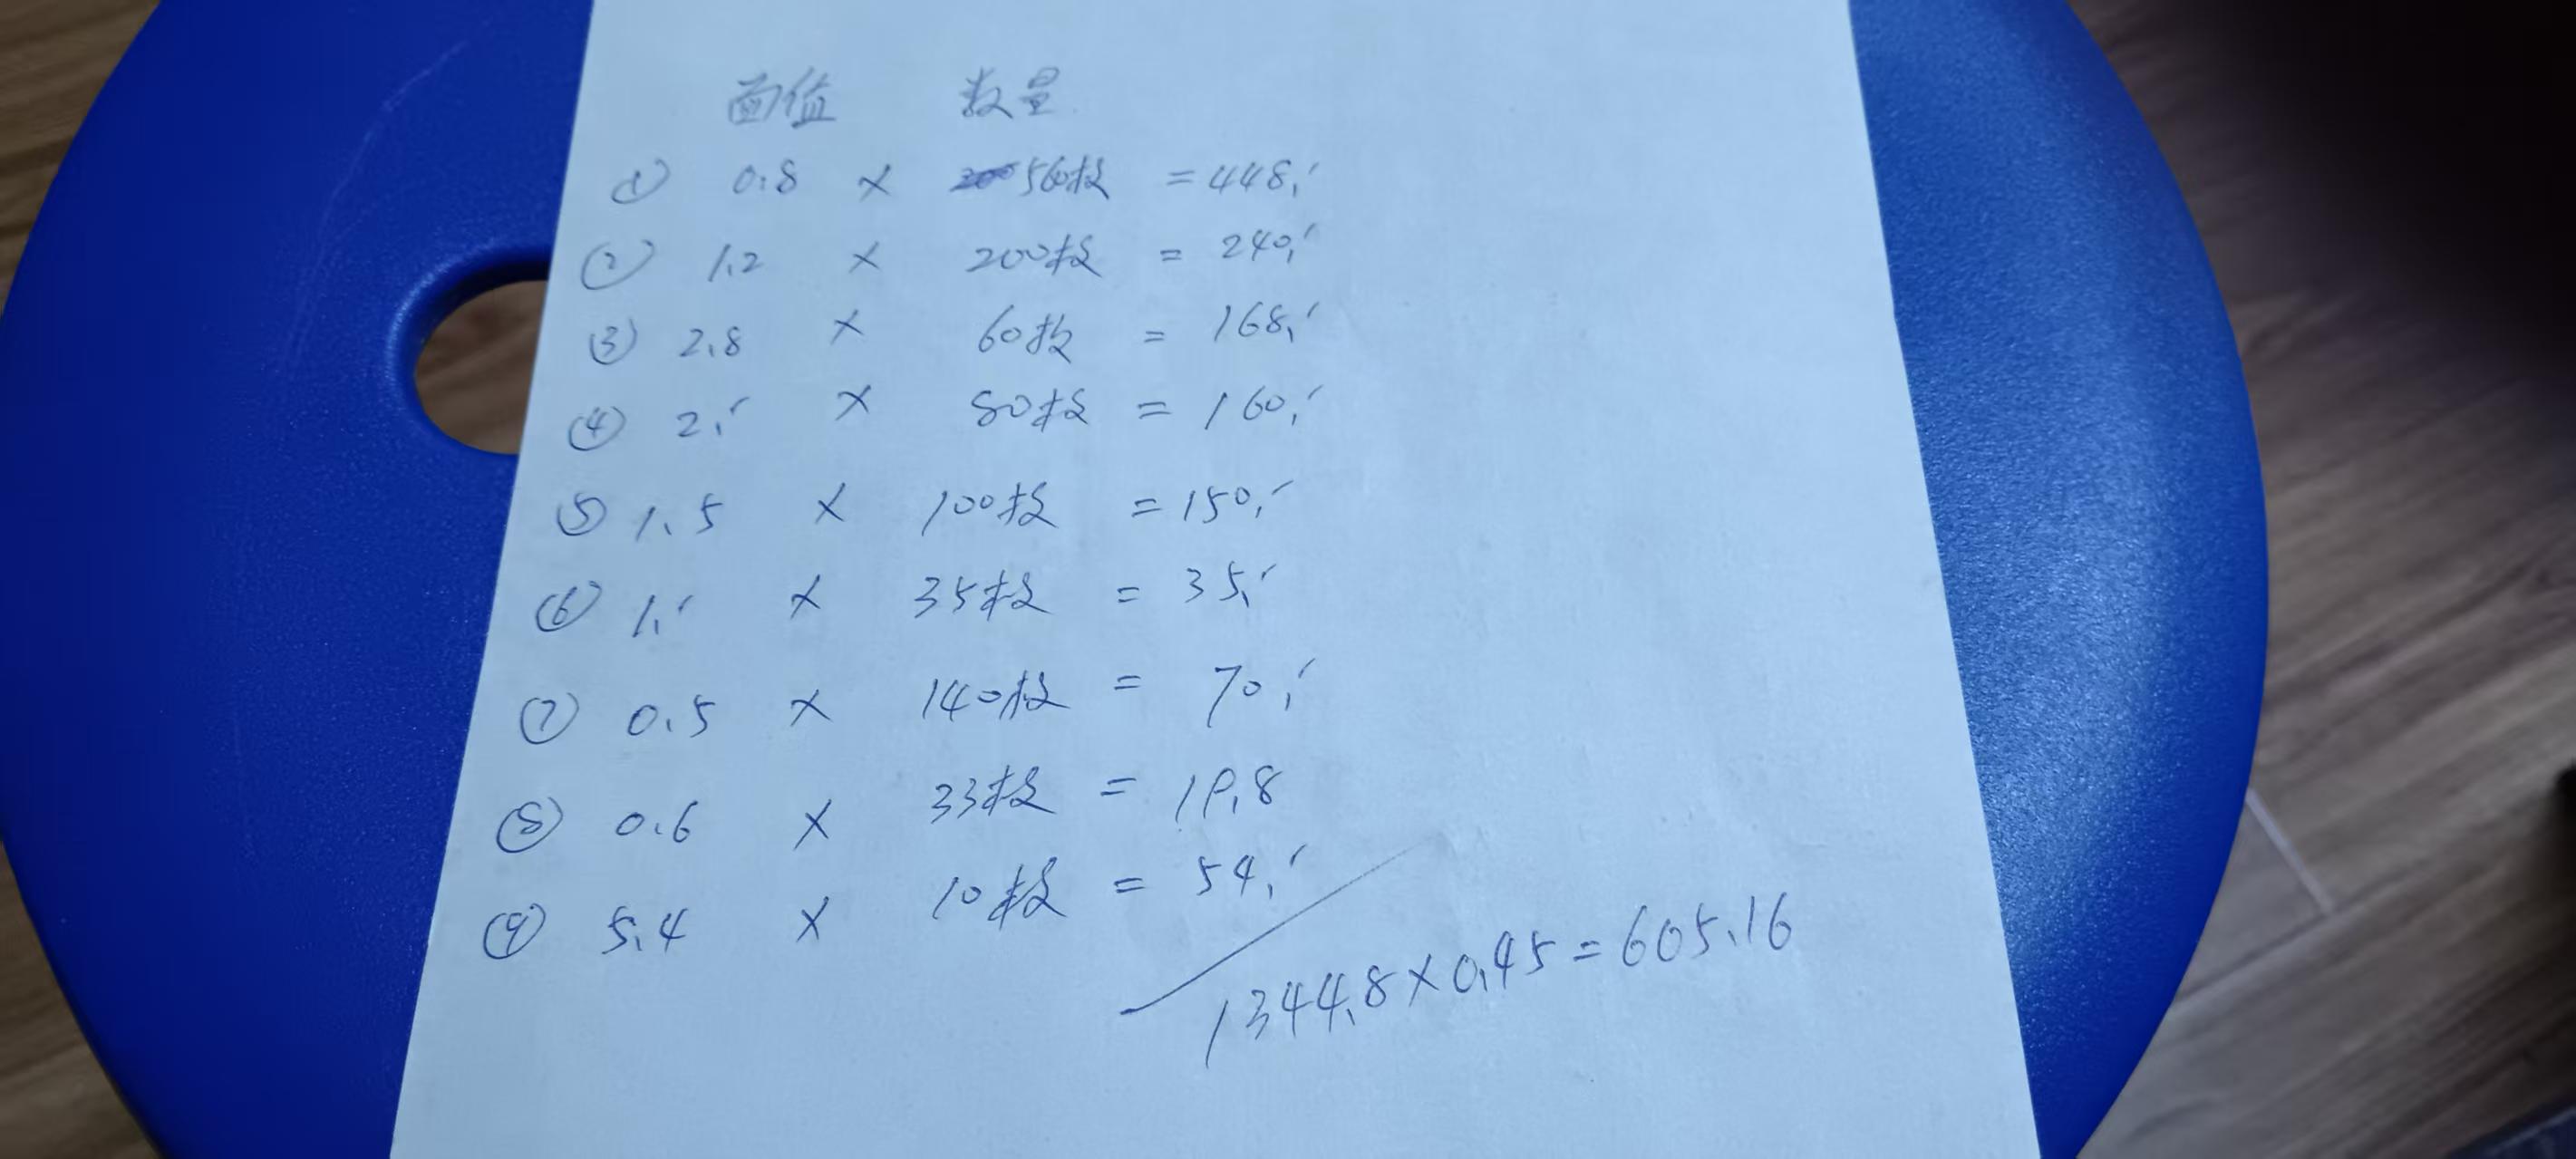 面值 数量
① 0.8 × 560枚 = 448.-
② 1.2 × 200枚 = 240.-
③ 2.8 × 60枚 = 168.-
④ 2.- × 80枚 = 160.-
⑤ 1.5 × 100枚 = 150.-
⑥ 1.- × 35枚 = 35.-
⑦ 0.5 × 140枚 = 70.-
⑧ 0.6 × 33枚 = 19.8
⑨ 5.4 × 10枚 = 54.-
1344.8 × 0.45 = 605.16